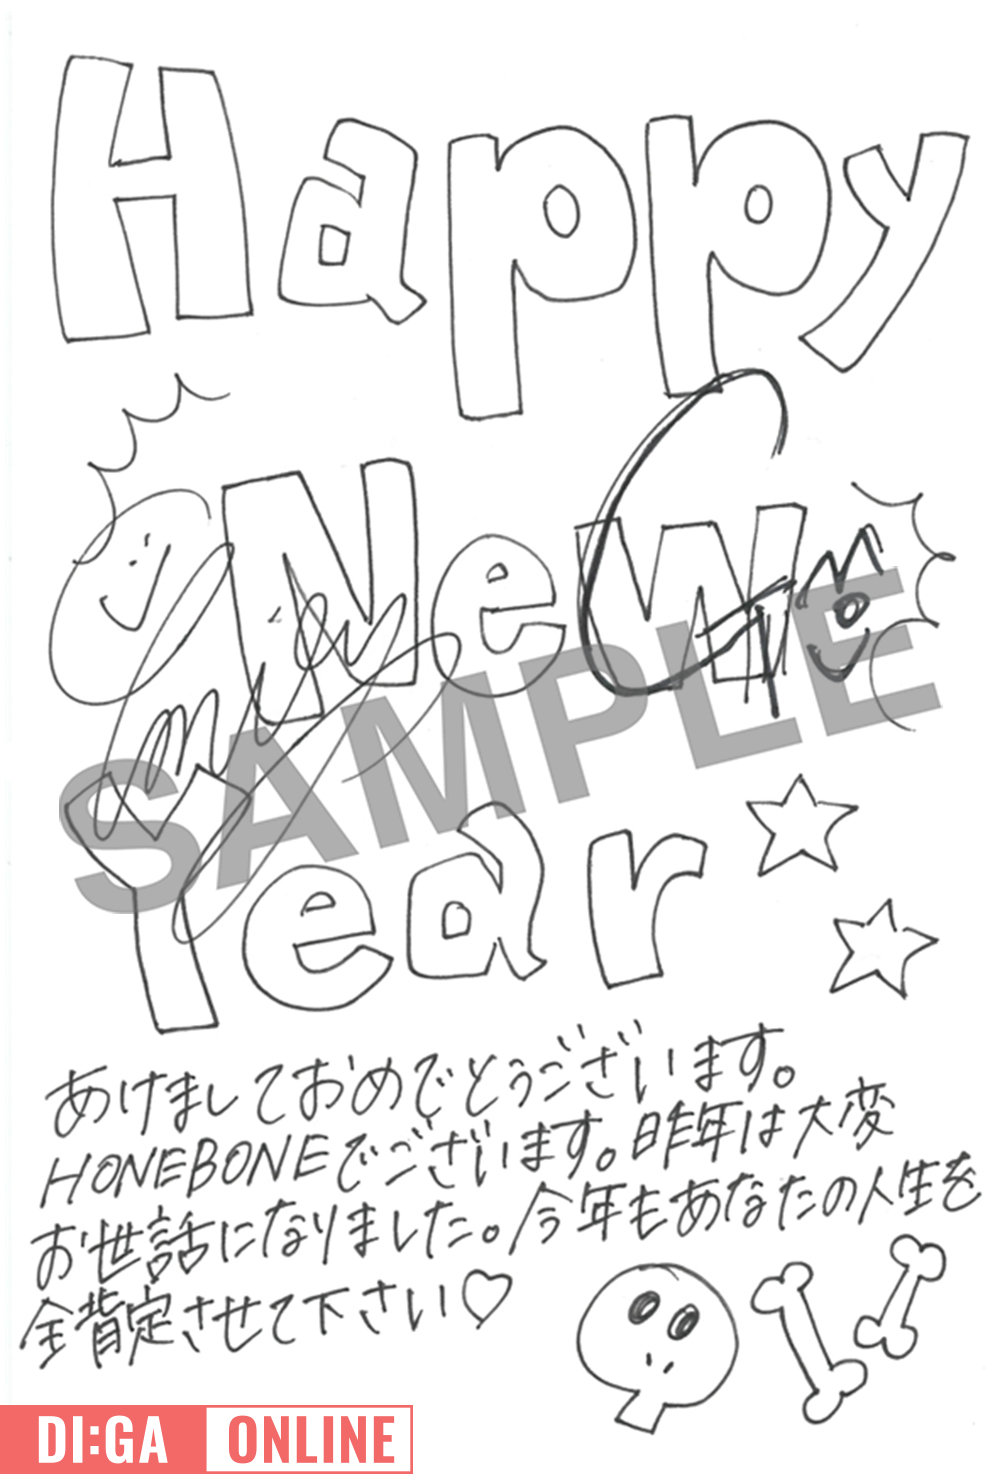 Happy
New
Year
SAMPLE
あけましておめでとうございます。
HONEBONEでございます。昨年は大変
お世話になりました。今年もあなたの人生を
全肯定させて下さい♡
DI:GA ONLINE